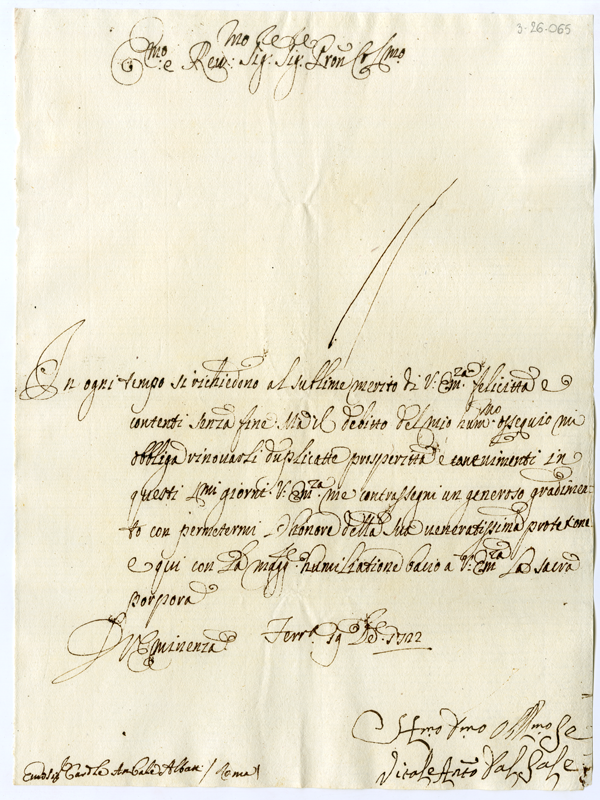 3-26-065
E.mo e Reu.mo Sig: Sig: Pron Col.mo
In ogni tempo si richiedono al sublime merito di V. Em.za felicittà e
contenti senza fine. Ma il debitto del mio hum.mo ossequio mi
obbliga rinouarli duplicatte prosperittà e contenimenti in
questi S.mi giorni. V. Em.za me contrassegni un generoso gradimen-
to con permetermi l'honore della Sua veneratissima protetione
e qui con la magg.re humiliatione bacio a V. Em.za La sacra
porpora
Di V. Eminenza
Ferr.a 19 Xbre 1722
H.mo D.mo Oblig.mo Se
Vitale Ant.o Dal Sale
Emo Sig. Card.le Anibale Albani / Roma